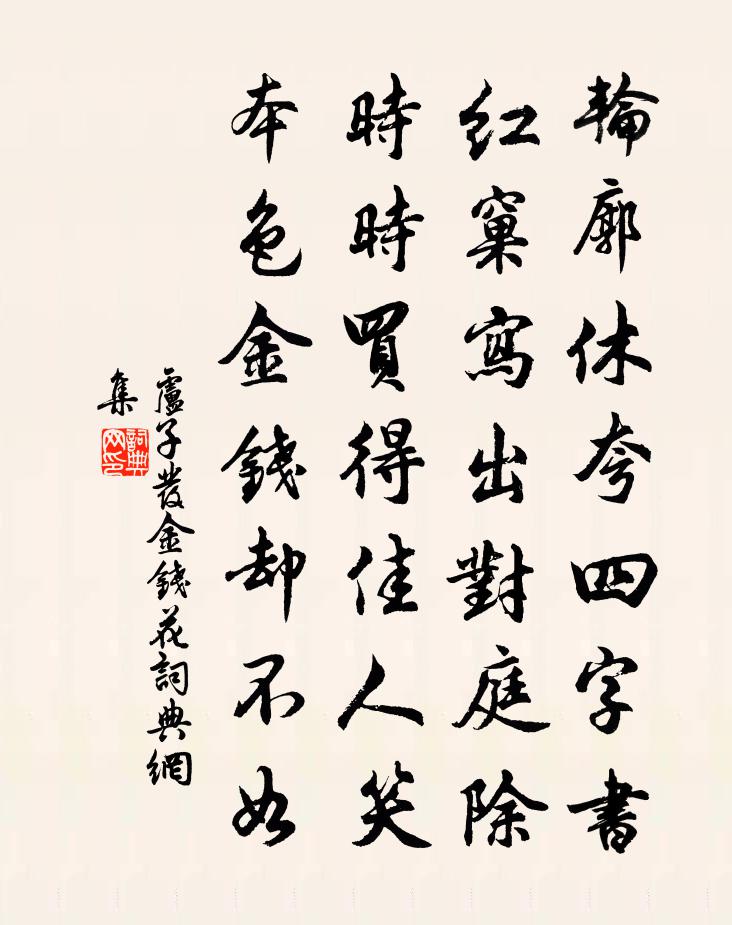 輪廓休夸四字書
紅窠寫出對庭除
時時買得佳人笑
本色金錢却不如
盧子發金錢花詞典網
集
詞典
网印